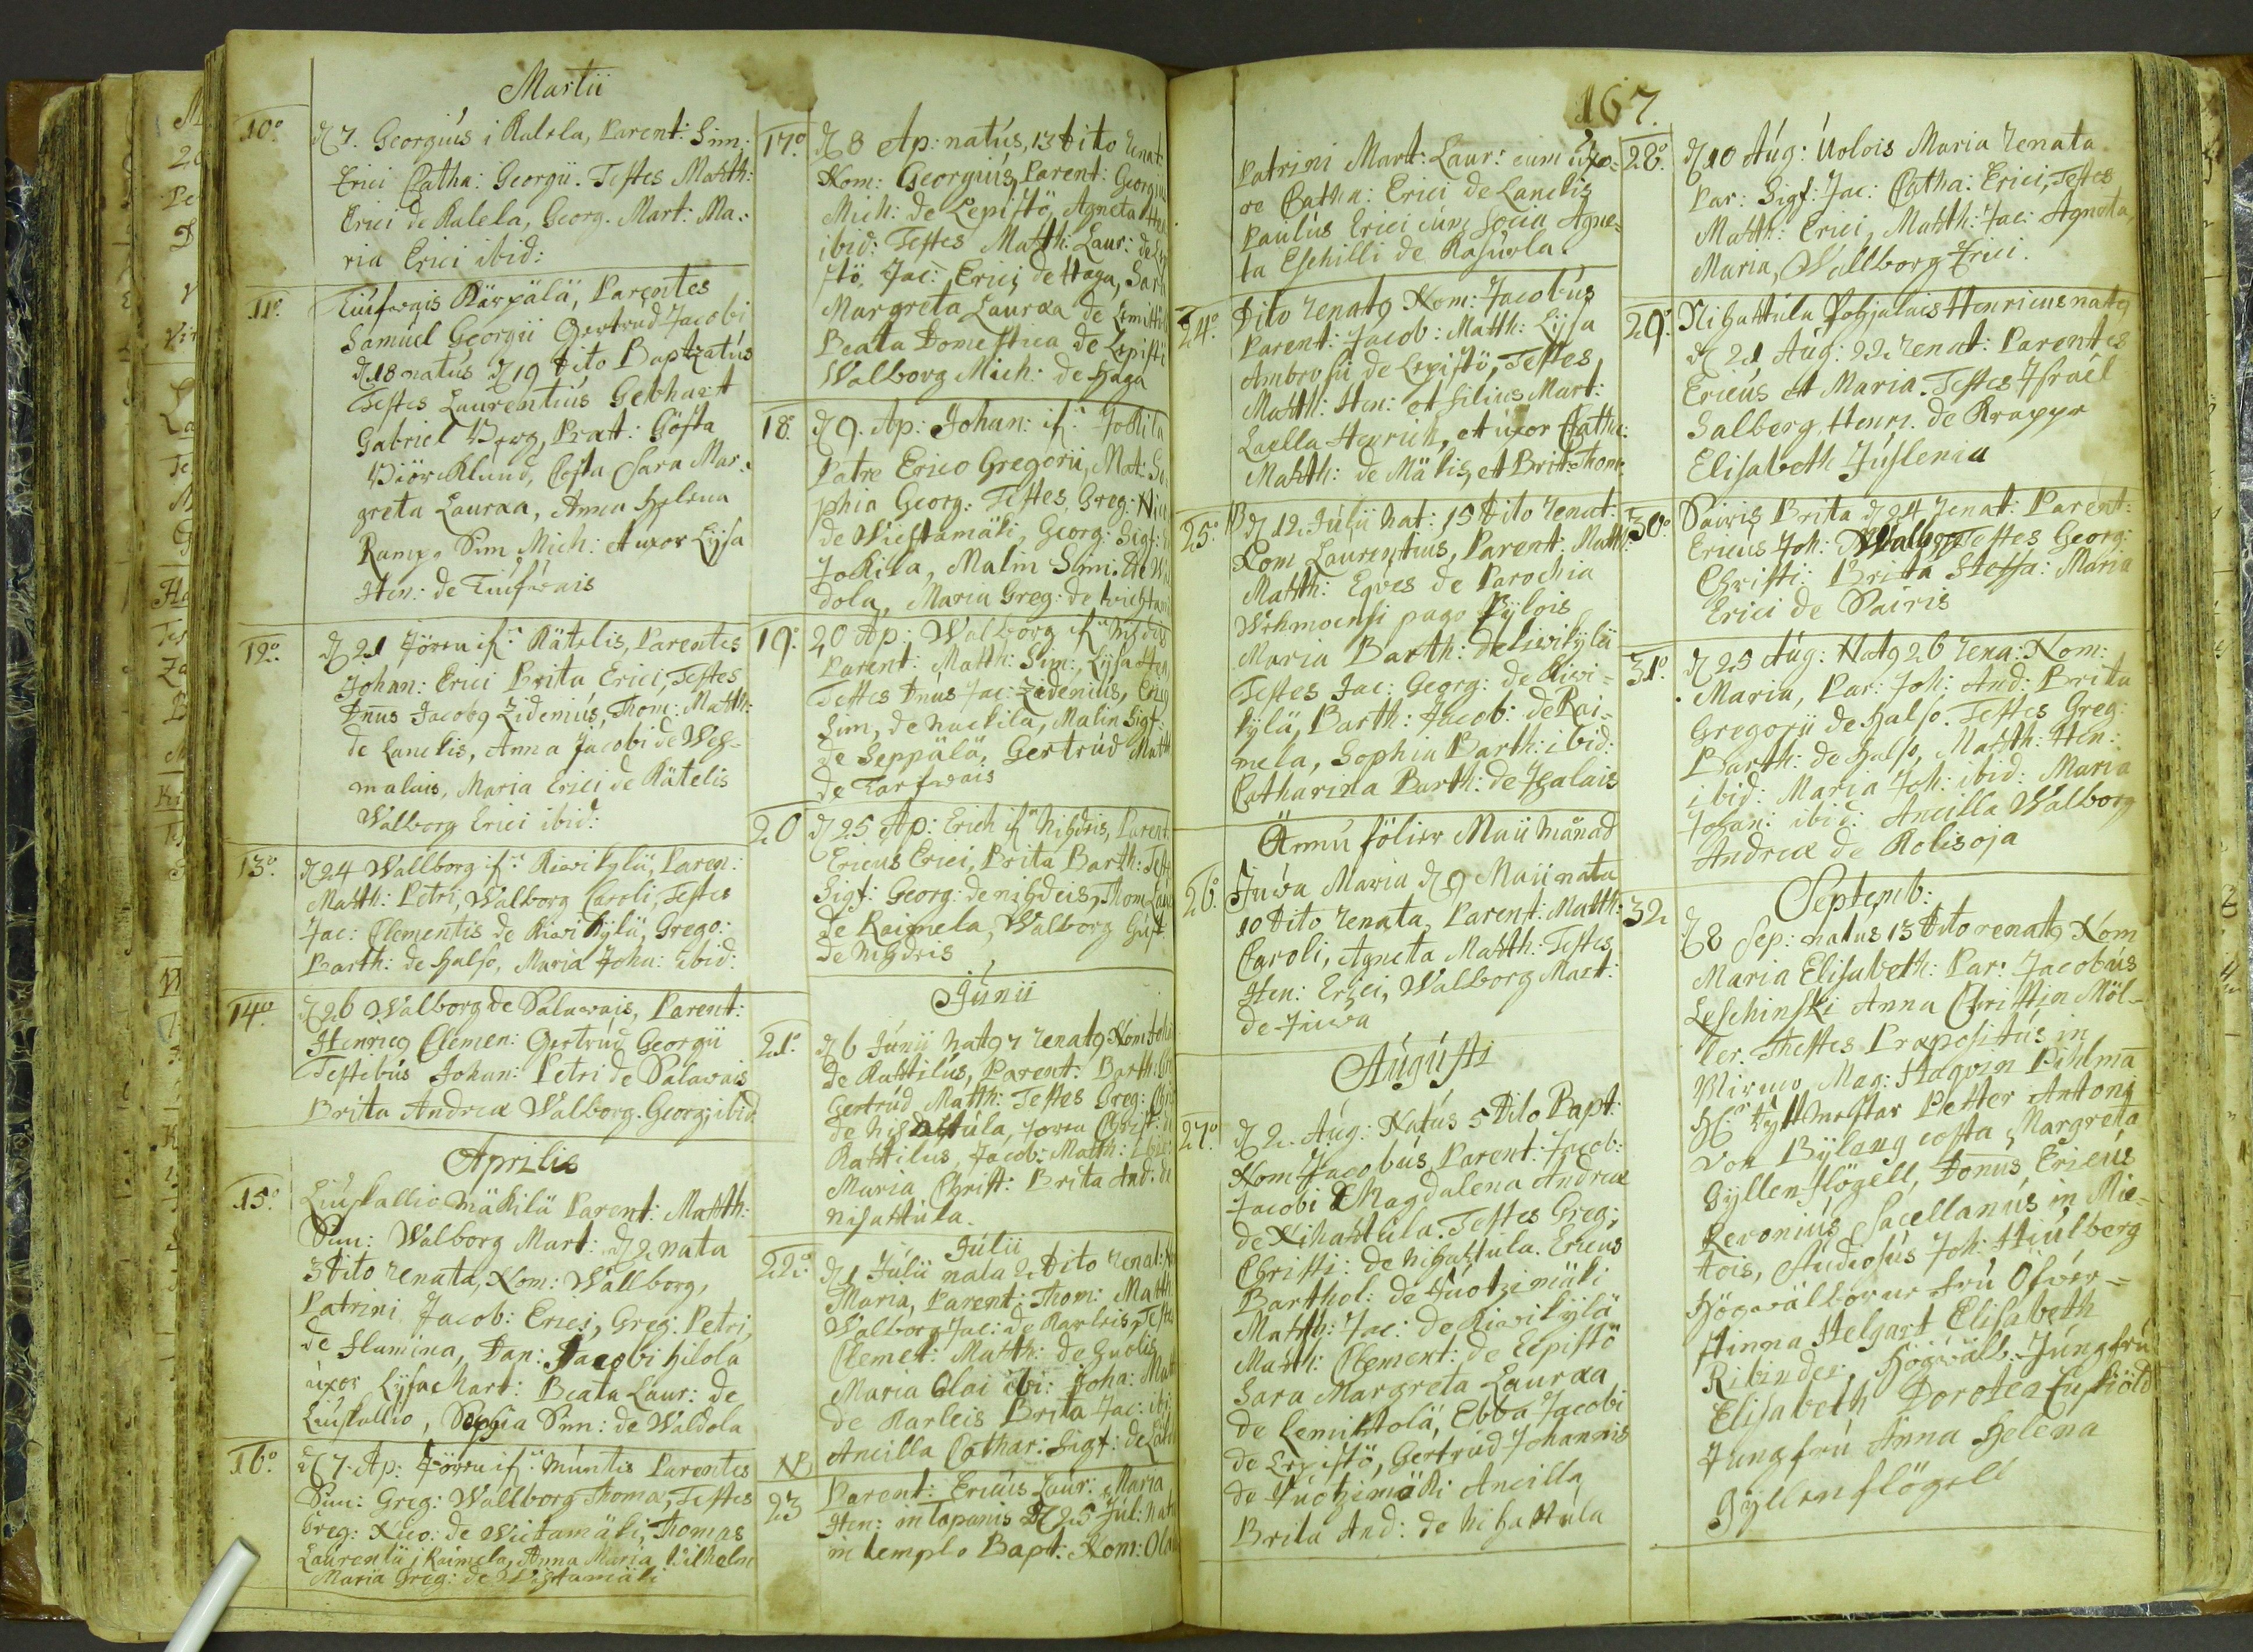 Martii
10º
d 7. Georgiús i Kalela, Parent: Sim:
Erici Catha: Georgii. Testes Matth:
Erici de Kalela, Georg. Mart: Ma:
ria Erici ibid:
11º
Kärpälä, Parentes
Samúel Georgii Gertrud Jacobi
d 18 natús d 19 dito Baptzatús
Testes Laurentiús Gebhart
Gabriel Berg, Præf: Gösta
Biörcklúnd, Costa Sara Mar:
greta Lauræa, Anna Helena
Ramp. Sim Mich: et uxor Lysa
Hen: de
12º
d 21 Jören if: Kätelis, Parentes
Johan: Erici Brita Erici, Testes
Dnus Jacobg Zideniús, Thom: Matth:
de Lanckis, Anna Jacobi de Weh-
malais, Maria Erici de Kätelis
Walborg Erici ibid:
13º
d 24 Wallborg if: Kiwikylä, Paren:
Matth: Petri, Walborg Caroli, Testes
Jac: Clementis de Kiwikylä, Grego:
Barth: de Halso, Maria Joha: ibid:
14º
d 26 Walborg de Salawais, Parent:
Henricg Clemen: Gertrúd Georgii
Testibús Johan: Petri de Salawais
Brita Andreæ Walborg. Georg: ibid
Aprilis
15º
Liúskallio Mäkilä Parent: Matth:
Sim: Walborg Mart: d 2 nata
3 dito renata, Nom: Wallborg,
Patrini Jacob: Erici, Greg: Petri,
de Humina, Dan: Jacobi Hilola
úxor Lysa Mart: Beata Laur: de
Liúskallio, Sophia Sim: de Waldola
16º
d 7. Ap: Jören if: Múntis Parentes
Sim: Greg: Wallborg Thomæ, Testes
Greg: Nico: de Wictamäki, Thomas
Laúrentii i Raimela, Anna Maria Wilhelm
Maria Greg: de Wihtamäki
17º
d 8 Ap: natús, 13 dito renat
Nom: Georgiús, Parent: Georgius
Mich: de Lepistö, Agneta Hen
ibid: Testes Matth: Laur: de Lepi
stö, Jac: Erici de Haga, Sara
Margreta Lauræa de Lemittö
Beata Domestica de Lepistö
Walborg Mich: de Haga
18.
d 9. Ap: Johan: if: Jokila
Patre Erico Gregorii, Mat: So
phia Georg: Testes, Greg: Nico
de Wiestamäki, Georg: Sigf:
Jokila, Malin Sim: de Wa
dola, Maria Greg: de Wichtam
19º
20 Ap: Walborg if: Nihdis
Parent: Matth: Sim:, Lysa Hen
Testes Dnús Jac: Zideniús, Ericg
Sim, de Nuckila, Malin Sigf:
de Seppälä, Gertrúd Matth
de Tarfwais
20
d 25 Ap: Erich if: Nihdis, Parent
Ericus Erici, Brita Barth: Test
Sigf: Georg: de Nihdeis, Thom: Laur
de Raimela, Walborg Gúst
de Nihdris
Júnii
21º
d 6 Júnii natg 7 renatg Nom Joha
de Kattilús, Parent: Barth:
Gertrud Matth: Testes Greg: Chri
de Nihattúla, Jören Christ:
Kattilus, Jacob: Matth: ibid:
Maria Christ: Brita And: de
Nihattúla.
Júlii
22º
d 1 Júlii nata 2 dito renat:
Maria, Parent: Thom: Matth
Walborg Jac: de Karleis, Teste
Clemet: Matth: de Huolis
Maria Olai ibi: Joha: Matt
de Karleis Brita Jac: ibi
Ancilla Cathar: Sigf: de
NB
23
Parent: Ericús Laúr: Maria
Hen: in Tapanis d 25 Júl: nat
in templo Bapt: Nom: Ola
167.
Patrini Mart: Laur: cum úxo-
re Catha: Erici de Lanckis
Paulús Erici cum socia Agne-
ta Eschilli de Kasúrla.
24º
Dito renatg Nom: Jacobús
Parent: Jacob: Matth: Lysa
Ambrosii de Lepistö, Testes
Matth: Hen: et filius Mart:
Laella Henrich, et úxor Catha:
Matth: de Mäkis, et Brit: Thom:
25º
d 12. Júlii nat: 15 dito renat:
Nom Laurentius, Parent: Matth:
Matth: Eqves de Parochia
Wehmoensi pago Pylois
Maria Barth: de Kiwikylä
Testes Jac: Georg: de Kiwi-
kylä, Barth: Jacob: de Rai-
mela, Sophia Barth: ibid:
Catharina Barth: de Jzalais
Ännú följer Maii månad
26º
Júwa Maria d 9 Maii nata
10 dito renata, Parent: Matth:
Caroli, Agneta Matth: Testes
Hen: Erici, Walborg Mart:
de Júwa
Aúgústi
27º
d 2. Aúg: Natús 5 dito Bapt:
Nom Jacobús, Parent: Jacob:
Jacobi & Magdalena Andreæ
de Nihattúla. Testes Greg:
Christi: de Nihattúla. Ericus
Barthol: de Húotzimäki
Matth: Jac: de Kiwikylä
Matth: Clement: de Lepistö
Sara Margreta Lauræa
de Lemittolä, Ebba Jacobi
de Lepistö, Gertrúd Johannis
de Húotzimäki Ancilla
Brita And: de Nihattúla
28º
d 10 Aúg: Uolois Maria renata
Par: Sigf: Jac: Catha: Erici, Testes
Matth: Erici, Matth: Jac: Agneta,
Maria, Wallborg Erici.
29º
Nihattúla Pohjalais Henricus natg
d 21 Aúg: 22 renat: Parentes
Ericús et Maria. Testes Israël
Salberg, Henr. de Krappe
Elisabeth Júslenia
30º
Sairis Brita d 24 renat: Parent:
Ericús Joh: Walbor Testes Georg:
Christi: Brita Steffa: Maria
Erici de Sairis
31º
d 25 Aúg: Natg 26 rena: Nom:
Maria, Par: Joh: And: Brita
Gregorii de Halso. Testes Greg:
Barth: de Halso, Matth: Hen:
ibid: Maria Joh: ibid: Maria
Johan: ibid: Ancilla Walborg
Andreæ de Kolisoja
Septemb:
32
d 8 Sep: natus 13 dito renatg Nom
Maria Elisabeth: Par: Jacobús
Leschinski Anna Christin Möl-
ler. Thestes Præpositús in
Virmo, Mag: Haqvin Pihlman
H: Ryttmestar Petter Antoni
von Bylang costa Margreta
Gyllenflögell, Donús Ericús
Revoniús, Sacellanús in Mie-
tois, Studiosús Joh: Hiulberg
Högwälborne frú Öfver-
stinna Helgart Elisabeth
Ribinder, Högwälb: Júngfrú
Elisabeth Dorotea Cuskiöld
Jungfrú Anna Helena
Gyllenflögell